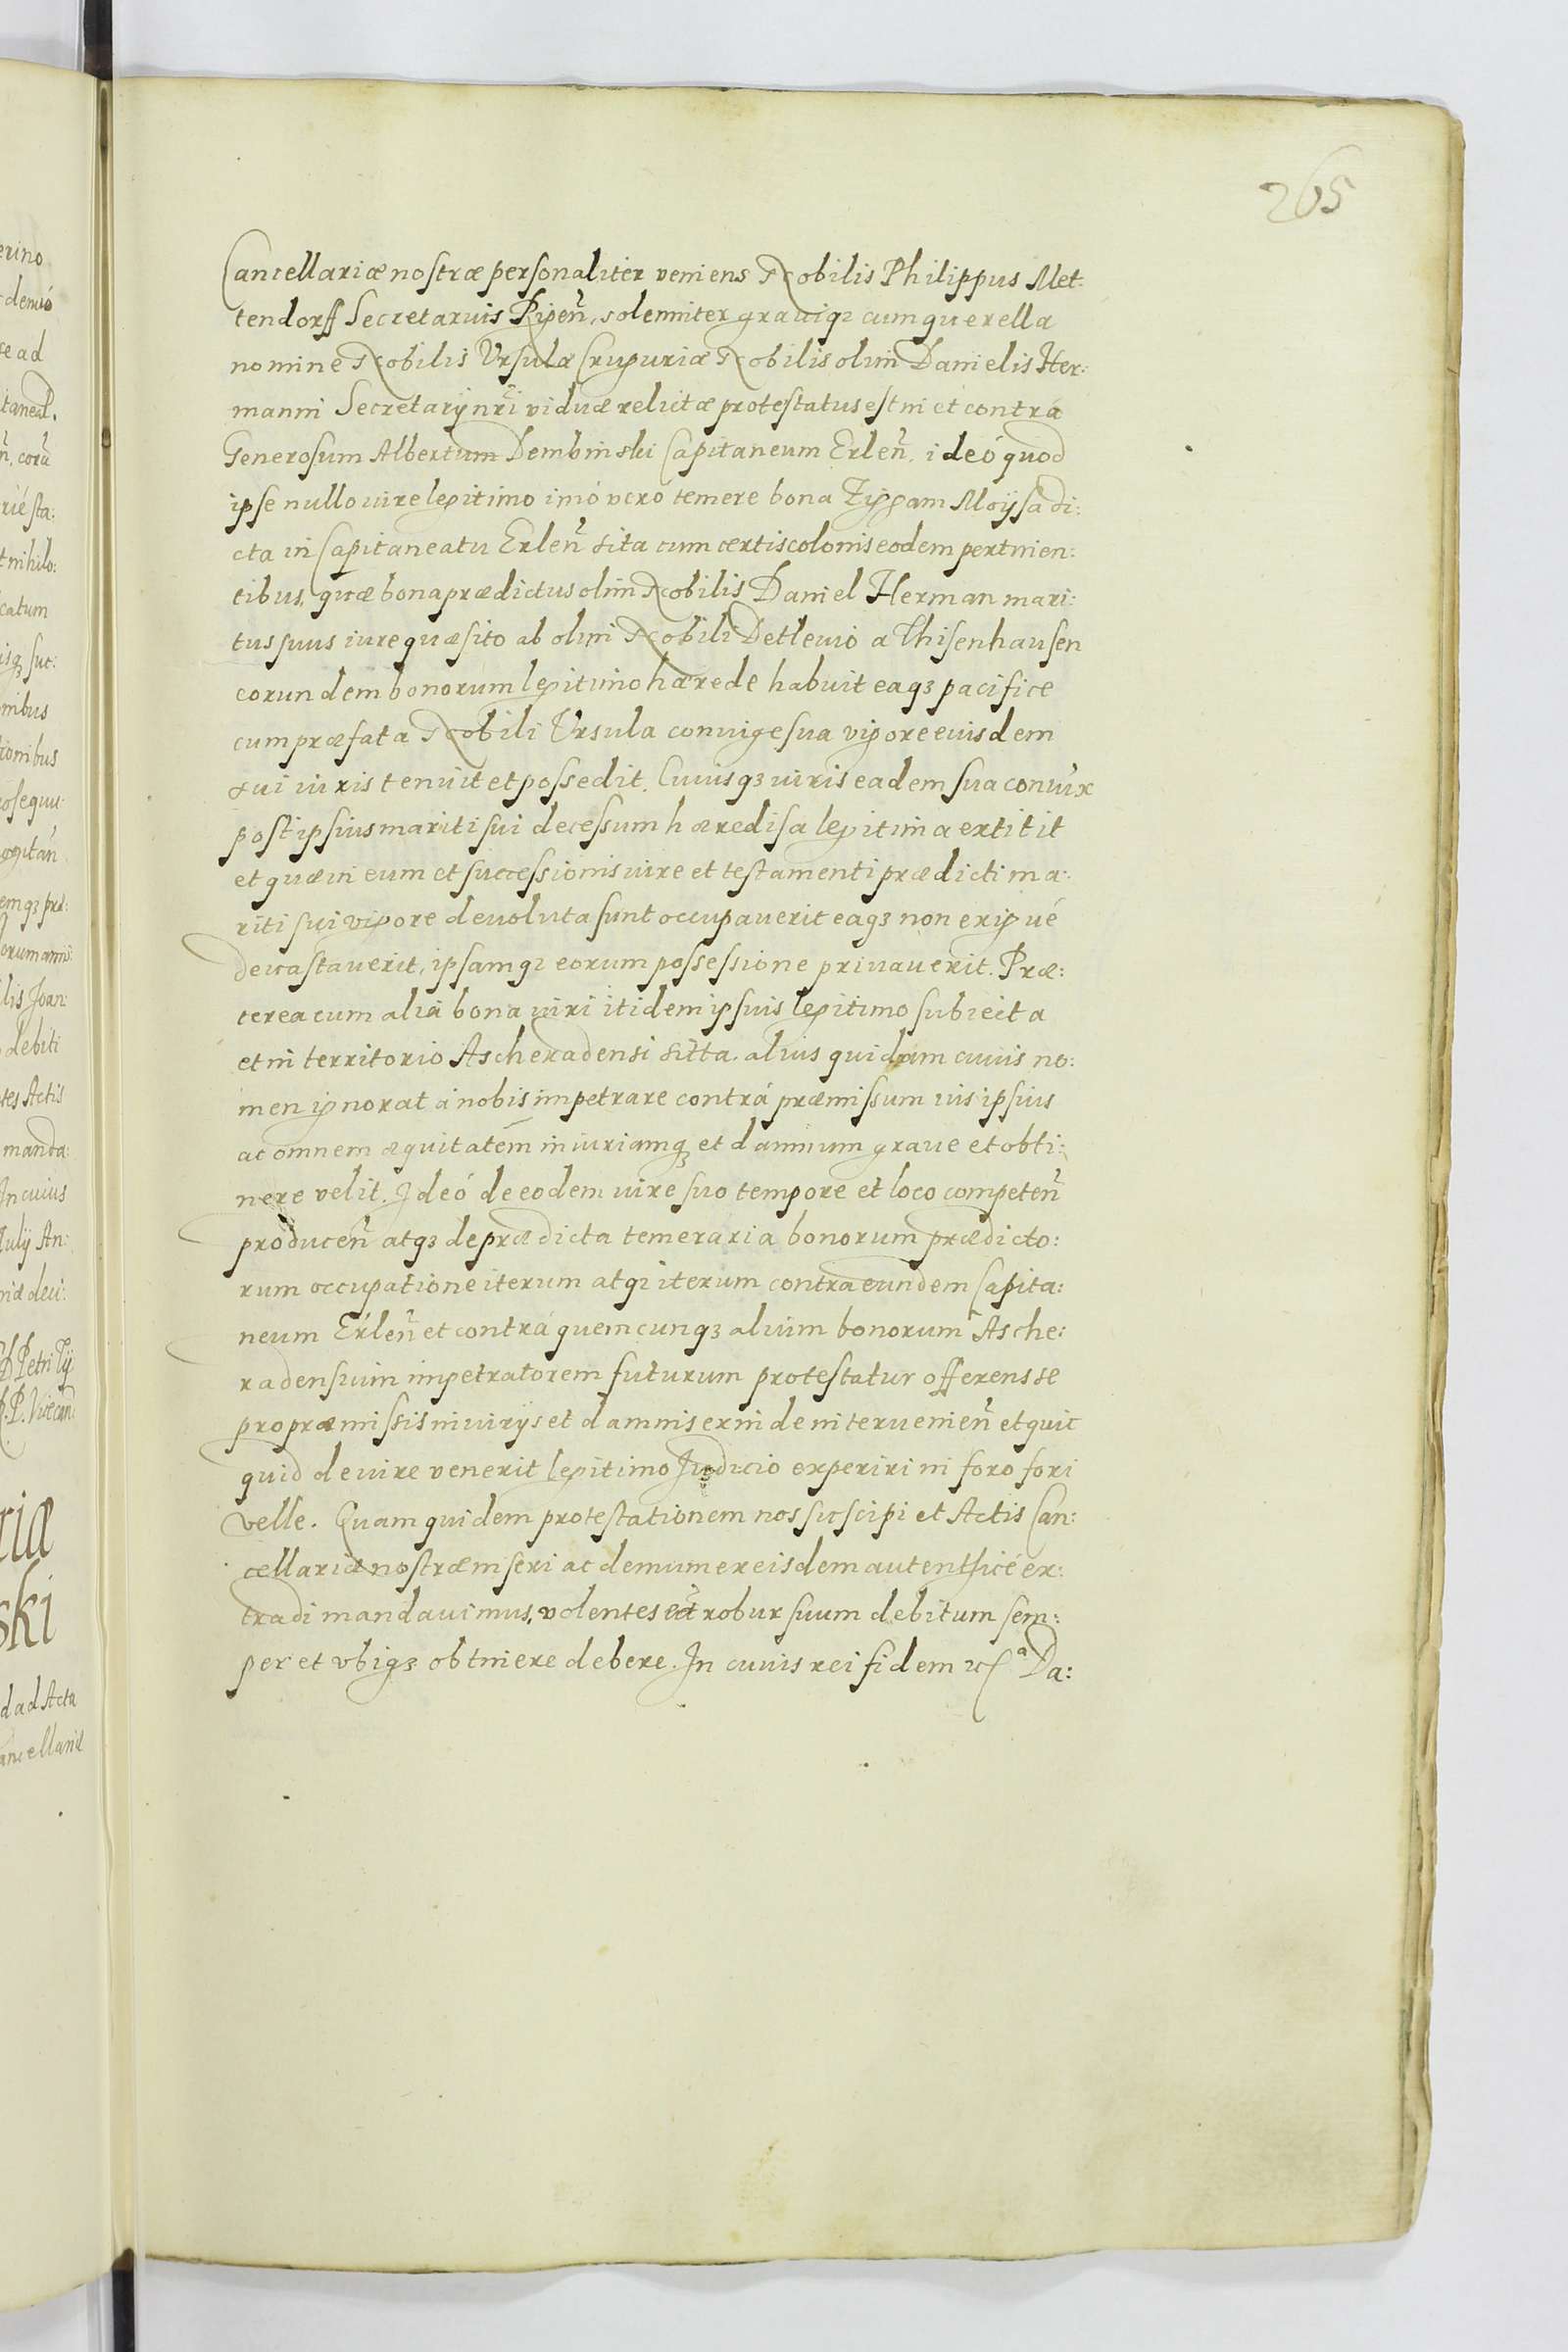 265
Cancellariæ nostræ personaliter veniens Nobilis Philippus Met:
tendorff Secretarius Rigeñ, solemniter grauiq₃ cum querella
nomine Nobilis Vrsulæ Nobilis olim Danielis Her:
manni Secretarÿ nrĩ viduæ relictæ protestatus est in et contrà
Generosum Albertum Dembinski Capitaneum Erleñ. ideó quod
ipse nullo iure legitimo imó vero temere bona Moÿsa di:
cta in Capitaneatu Erleñ sita cum certis colonis eodem pertinen:
tibus, quæ bona prædictus olim Nobilis Daniel Herman mari:
tus suus iure quæsito ab olim Nobili Detleuio a Thisenhausen
eorundem bonorum legitimo hærede habuit eaq₃ pacifice
cum præfata Nobili Vrsula coniuge sua vigore eiusdem
sui iuris tenuit et possedit. Cuius q₃ iuris eadem sua coniúx
post ipsius mariti sui decessum hæredisa legitima extitit
et quæ in eum et successionis iure et testamenti prædicti ma:
riti sui vigore deuoluta sunt occupauerit eaq₃ non exigué
deuastauerit, ipsamq₃ eorum possessione priuauerit. Præ:
terea cum alia bona iuri itidem ipsius legitimo subiecta
et in territorio Ascheradensi sitta. alius quidam cuius no:
men ignorat á nobis impetrare contrá præmissum ius ipsius
ac omnem æquitatem iniuriamq₃ et damnum graue et obti:
nere velit. Ideó de eodem iure suo tempore et loco competeñ
produceñ atq₃ de prædicta temeraria bonorum prædicto:
rum occupatione iterum atq₃ iterum contra eundem Capita:
neum Erleñ et contrá quemcunq₃ alium bonorum Asche:
radensium impetratorem futurum protestatur offerens se
pro præmissis iniurÿs et damnis exinde interuenieñ et quic
quid de iure venerit legitimo Judicio experiri in foro fori
velle. Quam quidem protestationem nos suscipi et Actis Can:
cellariæ nostræ inseri ac demum ex eisdem autenthicé ex:
tradi mandauimus, volentes robur suum debitum sem:
per et vbiq₃ obtinere debere. In cuius rei fidem Da: